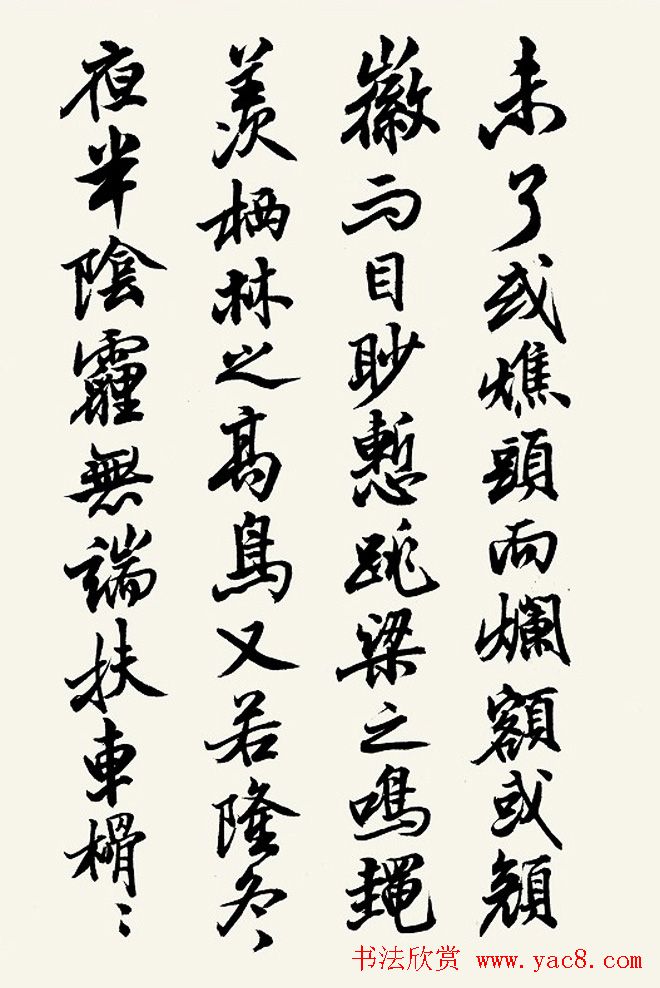 未了或燋頭而爛額或顏
徽而目眇慙跳梁之鳴䵷
羨栖林之高鳥又若隆冬
夜半陰霾無端扶車榾〻
书法欣赏 www.yac8.com